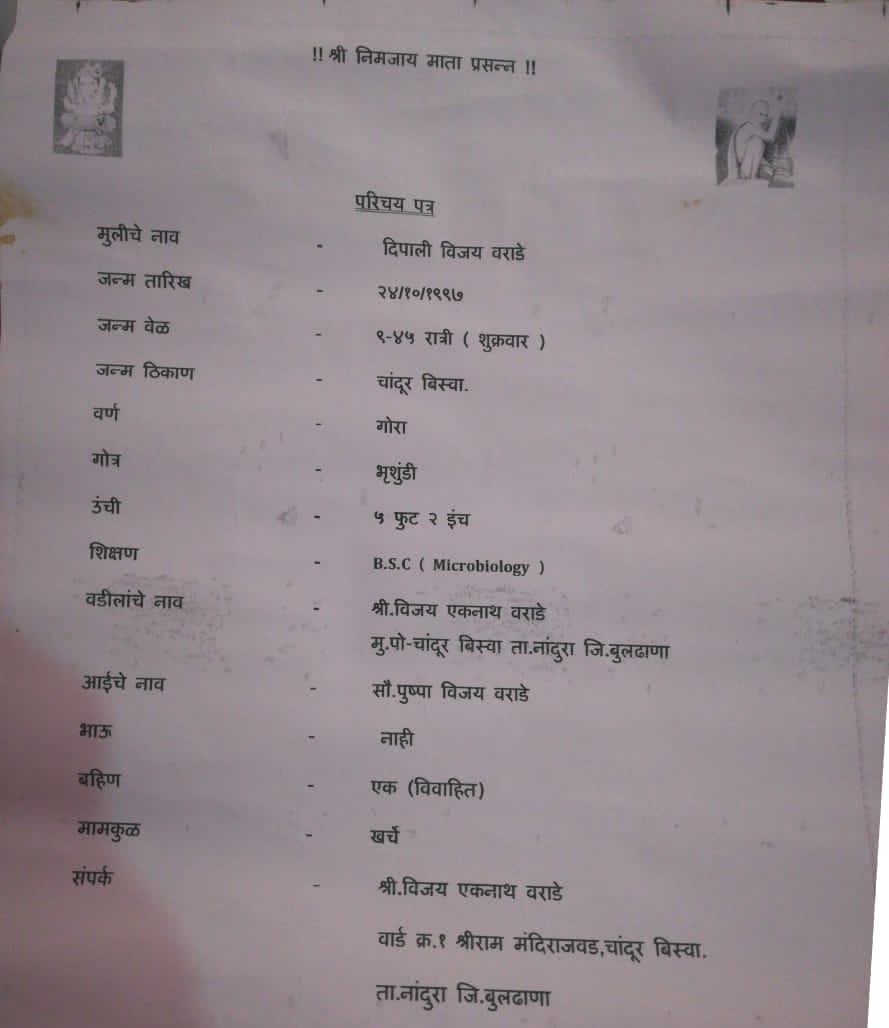 !! श्री निमजाय माता प्रसन्न !!
परिचय पत्र
मुलीचे नाव - दिपाली विजय वराडे
जन्म तारिख - २४/१०/१९९७
जन्म वेळ - ९-४५ रात्री ( शुक्रवार )
जन्म ठिकाण - चांदूर बिस्वा.
वर्ण - गोरा
गोत्र - भृशुंडी
उंची - ५ फुट २ इंच
शिक्षण - B.S.C ( Microbiology )
वडीलांचे नाव - श्री.विजय एकनाथ वराडे
मु.पो-चांदूर बिस्वा ता.नांदुरा जि.बुलढाणा
आईचे नाव - सौ.पुष्पा विजय वराडे
भाऊ - नाही
बहिण - एक (विवाहित)
मामकुळ - खर्चे
संपर्क - श्री.विजय एकनाथ वराडे
वार्ड क्र.१ श्रीराम मंदिराजवड,चांदूर बिस्वा.
ता.नांदुरा जि.बुलढाणा